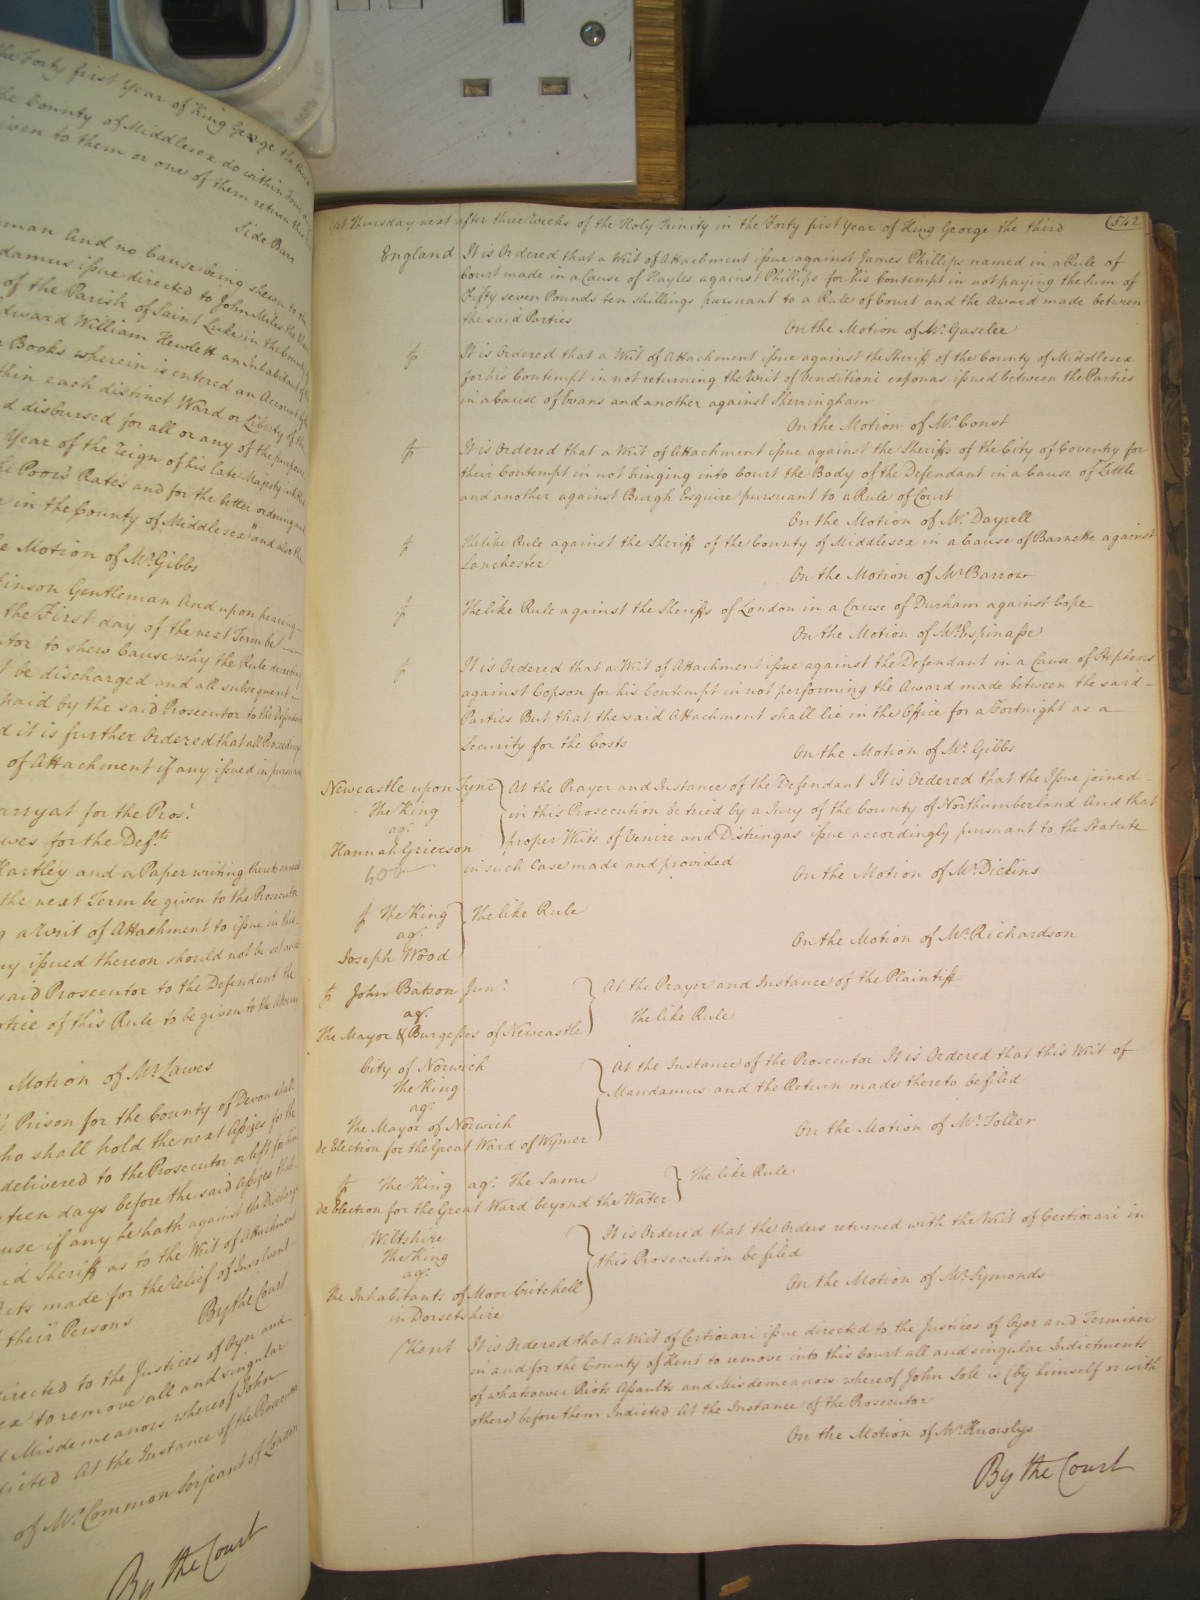 the Forty first Year of King George the third
the County of Middlesex do within Four
given to them or one of them return this
Side Barr
man And no Cause being shewn to the
damus issue directed to John Miles the
of the Parish of Saint Luke in the County
dward William Hewlett an Inhabitant of the
Books wherein is entered an Account
thin each distinct Ward or Liberty of the
d disbursed for all or any of the purposes
Year of the Reign of his late Majesty
he Poor's Rates and for the better ordering and
in the County of Middlesex" and also the
e Motion of Mr. Gibbs
inson Gentleman And upon hearing
the First day of the next Term be
utor to shew Cause why the Rule directing
be discharged and all subsequent
paid by the said Prosecutor to the Defendant
d it is further Ordered that all Proceedings
of Attachment if any issued in pursuance
arryat for the Pros.r
wes for the Def.ts
Hartley and a Paper writing thereto annexed
the next Term be given to the Prosecutor
g a Writ of Attachment to issue in this
ny issued thereon should not be set aside
said Prosecutor to the Defendant the
otice of this Rule to be given to the Attorney
Motion of Mr. Lawes
Prison for the County of Devon shall
ho shall hold the next Assizes for the
delivered to the Prosecutor or left for him
teen days before the said Assizes that
use if any he hath against the Discharge
id Sheriff as to the Writ of Attachment
cts made for the Relief of Insolvent
their Persons By the Court
irected to the Justices of Oyer and
ex to remove all and singular
d Misdemeanors whereof John
dicted At the Instance of the Prosecutor
of Mr. Common Serjeant of London
By the Court
Thursday next after three Weeks of the Holy Trinity in the Forty first Year of King George the third 542
England It is Ordered that a Writ of Attachment issue against James Phillips named in a Rule of
Court made in a Cause of Hayles against Phillips for his Contempt in not paying the Sum of
Fifty seven Pounds ten shillings pursuant to a Rule of Court and the Award made between
the said Parties On the Motion of Mr. Gaselee
It is Ordered that a Writ of Attachment issue against the Sheriff of the County of Middlesex
for his Contempt in not returning the Writ of Venditioni exponas issued between the Parties
in a Cause of Evans and another against Sherringham
On the Motion of Mr. Const
It is Ordered that a Writ of Attachment issue against the Sheriffs of the City of Coventry for
their Contempt in not bringing into Court the Body of the Defendant in a Cause of Little
and another against Burgh Esquire pursuant to a Rule of Court
On the Motion of Mr. Dayrell
The like Rule against the Sheriff of the County of Middlesex in a Cause of Barnette against
Lanchester
On the Motion of Mr. Barrow
The like Rule against the Sheriffs of London in a Cause of Durham against Cope
On the Motion of Mr. Espinasse
It is Ordered that a Writ of Attachment issue against the Defendant in a Cause of Stephens
against Copson for his Contempt in not performing the Award made between the said
Parties But that the said Attachment shall lie in the Office for a Fortnight as a
Security for the Costs On the Motion of Mr. Gibbs
Newcastle upon Tyne At the Prayer and Instance of the Defendant It is Ordered that the Issue joined
The King in this Prosecution be tried by a Jury of the County of Northumberland And that
ag.t proper Writs of Venire and Distringas issue accordingly pursuant to the Statute
Hannah Grierson in such Case made and provided
On the Motion of Mr. Dickins
The King The like Rule
ag.t
Joseph Wood
On the Motion of Mr. Richardson
John Batson Jun.r At the Prayer and Instance of the Plaintiff
ag.t The like Rule
The Mayor & Burgesses of Newcastle
City of Norwich At the Instance of the Prosecutor It is Ordered that this Writ of
The King Mandamus and the Return made thereto be filed
ag.t
The Mayor of Norwich On the Motion of Mr. Toller
de Election for the Great Ward of Wymer
The King ag.t The Same The like Rule
de Election for the Great Ward beyond the Water
Wiltshire It is Ordered that the Orders returned with the Writ of Certiorari in
The King this Prosecution be filed
ag.t
The Inhabitants of Moor Critchell On the Motion of Mr. Symonds
in Dorsetshire
Kent It is Ordered that a Writ of Certiorari issue directed to the Justices of Oyer and Terminer
in and for the County of Kent to remove into this Court all and singular Indictments
of whatsoever Riots Assaults and Misdemeanors whereof John Sole is (by himself or with
others) before them Indicted At the Instance of the Prosecutor
On the Motion of Mr. Knowlys
By the Court